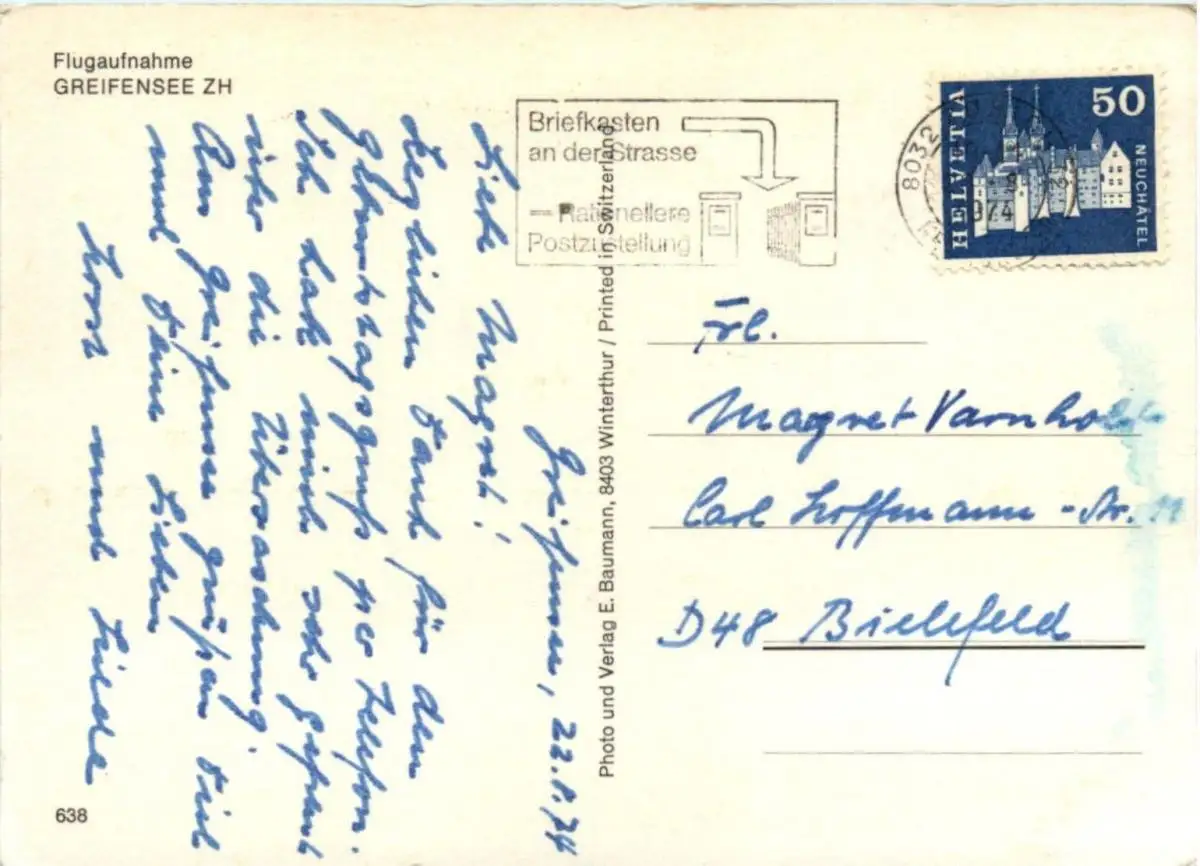 Flugaufnahme
GREIFENSEE ZH
Briefkasten
an der Strasse
– Rationellere
Postzustellung
8032
HELVETIA
50
NEUCHÂTEL
Greifensee, 22.8.74
Liebe Magret!
Herzlichen Dank für den
Geburtstagsgruß per Telefon.
Ich habe mich sehr gefreut
über die Überraschung.
Aus Greifensee grüßen Dich
und Deine Lieben
Horst und
Photo und Verlag E. Baumann, 8403 Winterthur / Printed in Switzerland
Frl.
Magret Varnholt
Carl Hoffmann-Str. 11
D48 Bielefeld
638